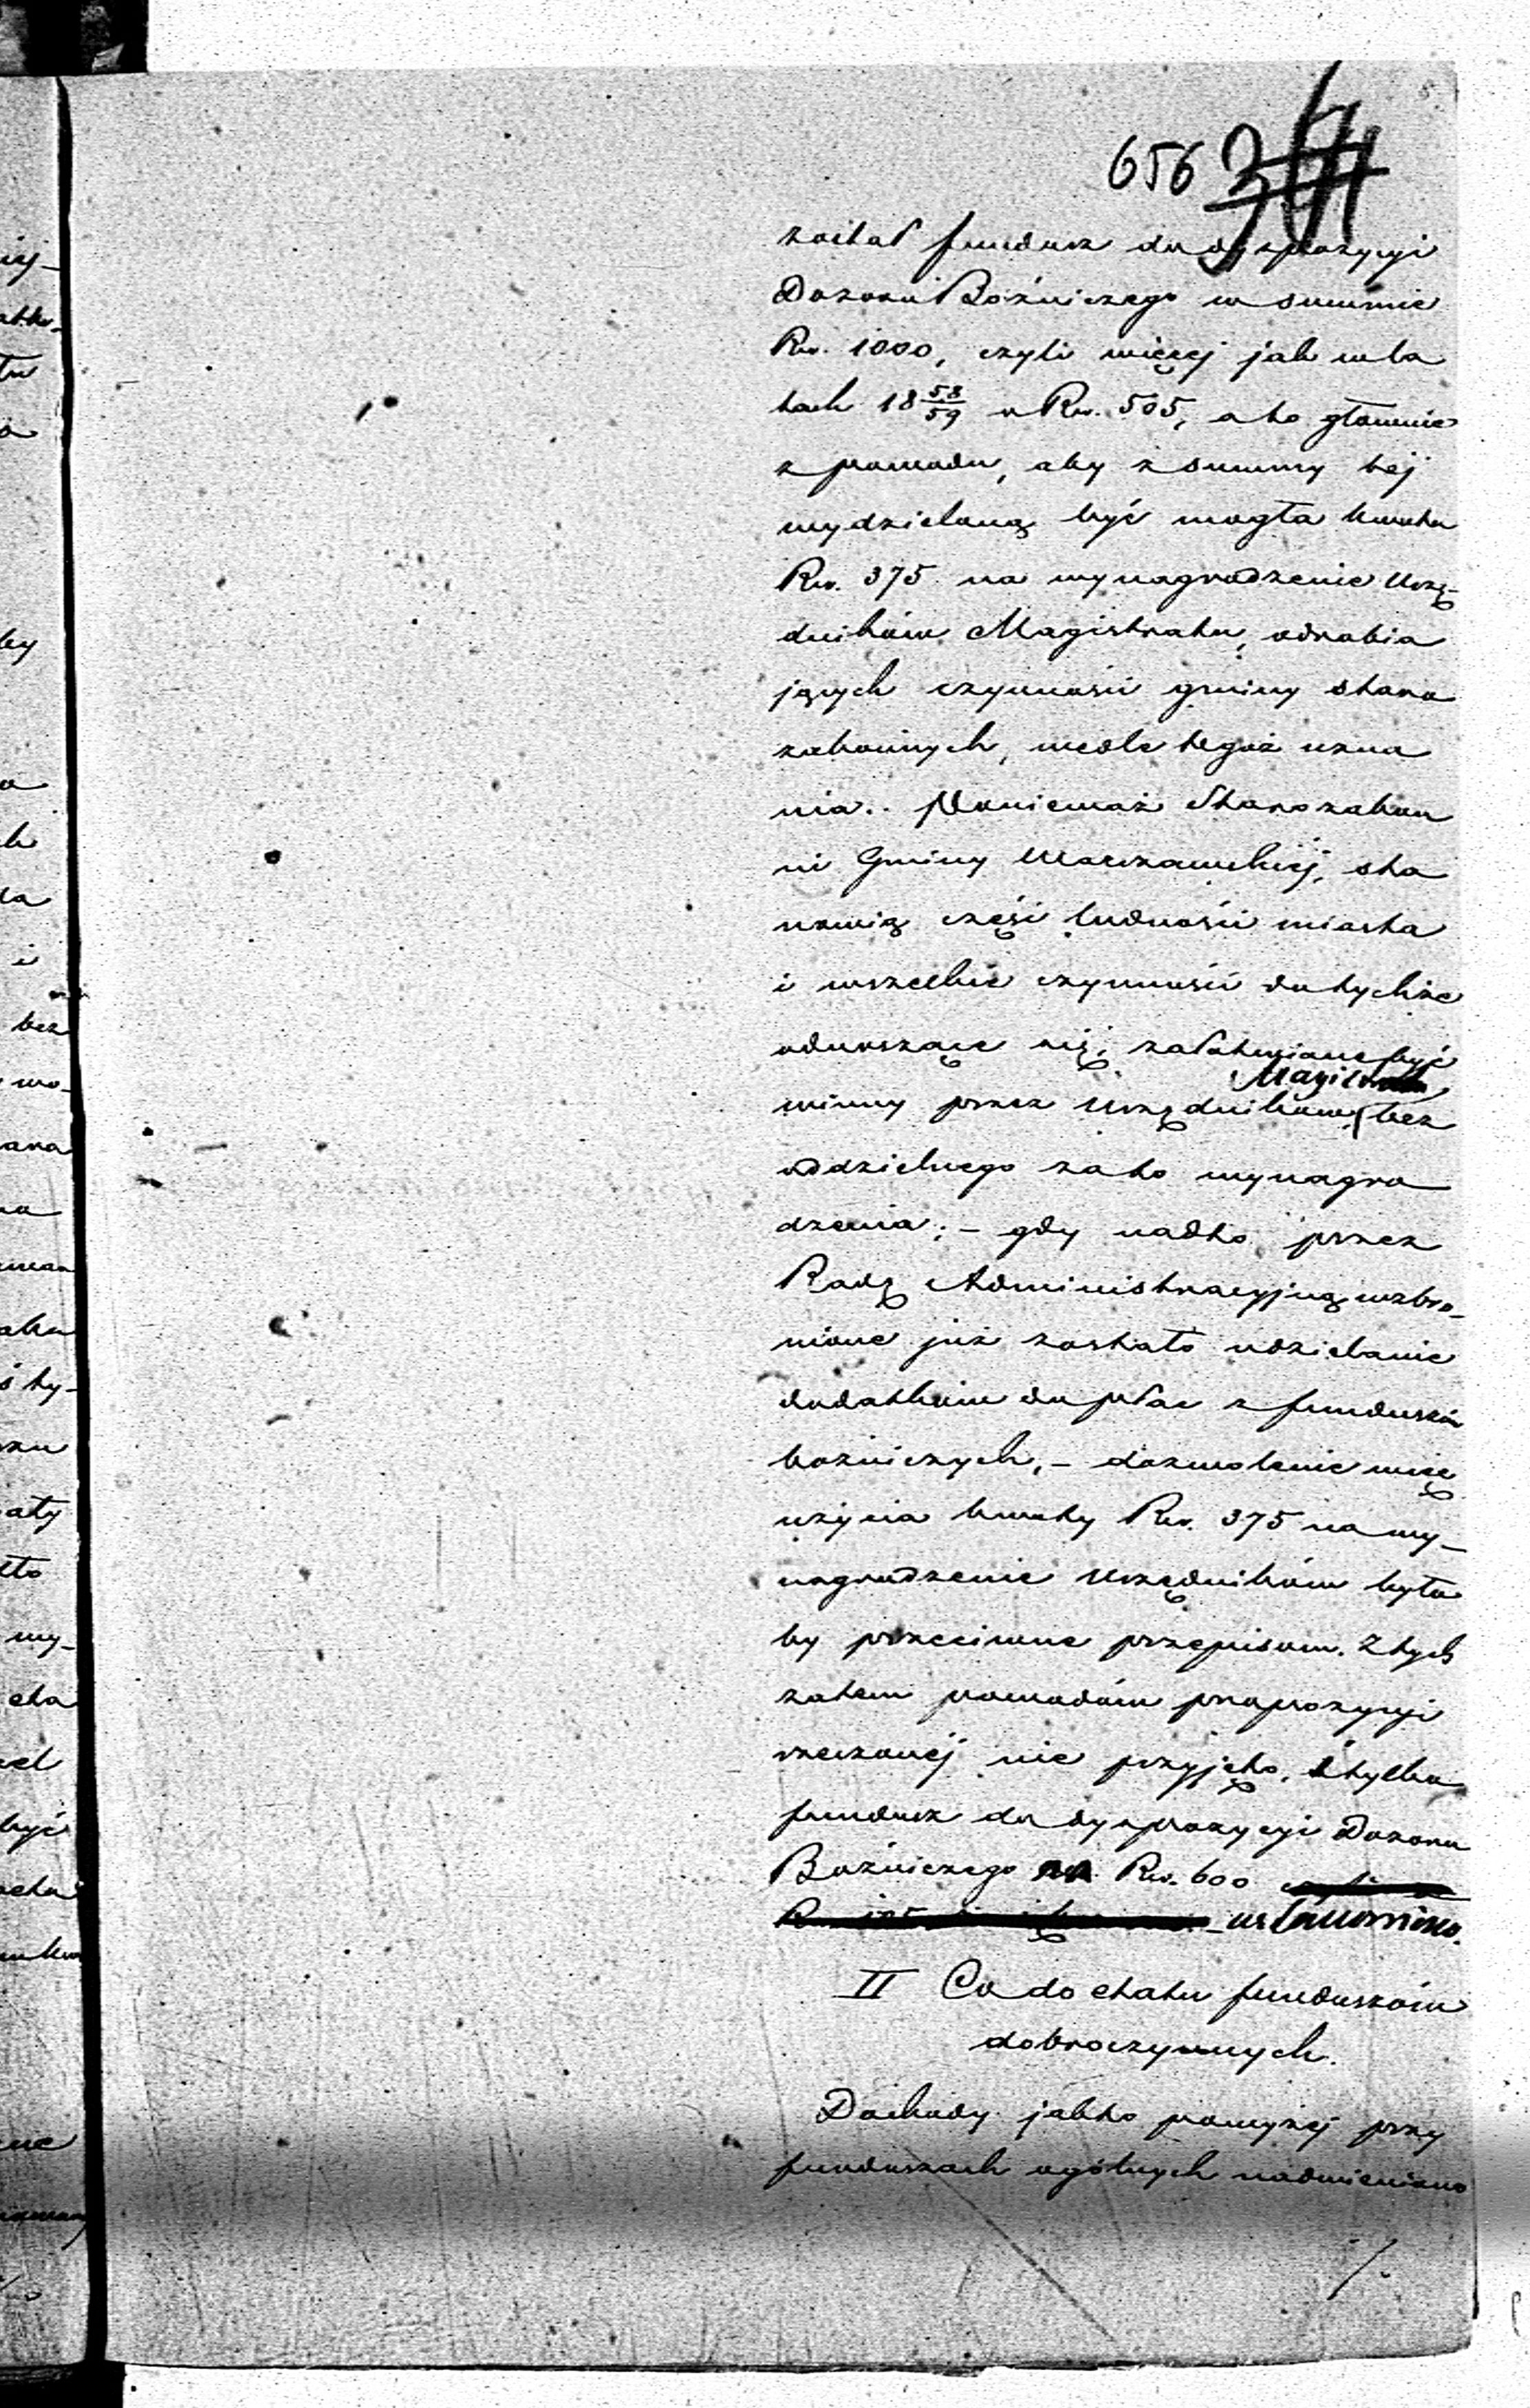 656
został fundusz do dyspozycyi
Dozoru Bóźniczego w summie
Rs. 1000, czyli więcej jak w la
tach 18 58/59 o Rs. 505, a to głównie
z powodu, aby z summy tej
wydzieloną być mogła kwota
Rs. 375 na wynagrodzenie Urzę-
dników Magistratu, odrabia
jących czynności gminy staro
zakonnych, wedle tegoż uzna
nia. Ponieważ Starozakon
ni Gminy Warszawskiej, sta
nowią część ludności miasta
i wszelkie czynności do tychże
odnoszące się, załatwiane być
winny przez Urzędników Magistratu bez
oddzielnego za to wynagro
dzenia; – gdy nadto przez
Radę Administracyjną wzbro-
nione już zostało udzielanie
dodatków do płac z funduszów
bóżniczych, – dozwolenie więc
użycia kwoty Rs. 375 na wy-
nagrodzenie Urzędników było
by przeciwne przepisom. Z tych
zatem powodów propozycyi
rzeczonej nie przyjęto, i tylko
fundusz do dyspozycyi Dozoru
Bóźniczego Rs. 600
ustanowiono.
II Co do etatu funduszów
dobroczynnych.
Dochody jak to powyżej przy
funduszach ogólnych nadmieniono